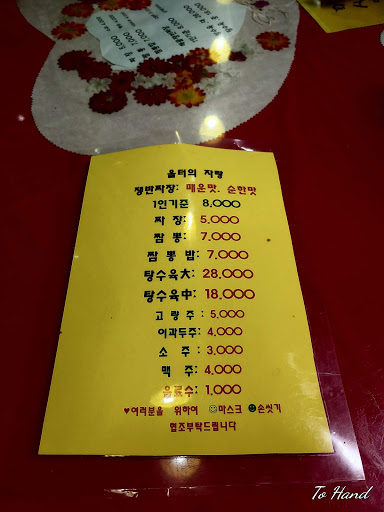 울터의 자랑
쟁반짜장: 매운맛. 순한맛
1인기준 8,000
짜 장: 5,000
짬 뽕: 7,000
짬 뽕 밥: 7,000
탕수육大: 28,000
탕수육中: 18,000
고 량 주 : 5,000
이과두주: 4,000
소 주 : 3,000
맥 주: 4,000
음료수: 1,000
♥여러분을 위하여 ☺마스크 ☻손씻기
협조부탁드립니다
To Hand